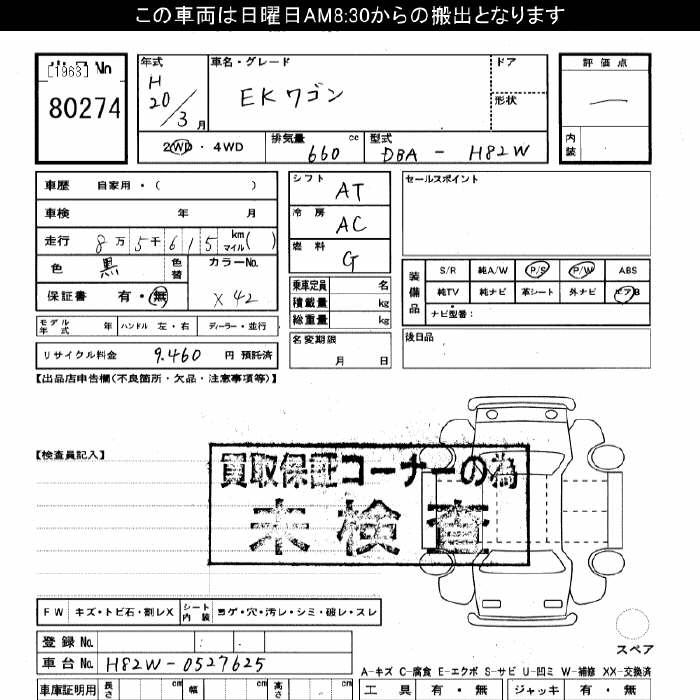 この車両は日曜日AM8:30からの搬出となります
[1963] No
80274
年式
H
20/3 月
車名・グレード
EKワゴン
ドア
形状
2WD ・ 4WD
排気量 660 cc
型式 DBA - H82W
評価点
―
内装
車歴 自家用・( )
車検 年 月
走行 8万5千615 km マイル( )
色 黒 色替
カラーNo. X42
保証書 有・無
モデル年式 年 ハンドル 左・右 ディーラー・並行
リサイクル料金 9.460 円 預託済
シフト AT
冷房 AC
燃料 G
乗車定員 名
積載量 kg
総重量 kg
名変期限
月 日
セールスポイント
装備品
S/R 純A/W P/S P/W ABS
純TV 純ナビ 革シート 外ナビ エアB
ナビ型番:
後日品
【出品店申告欄(不良箇所・欠品・注意事項等)】
【検査員記入】
買取保証コーナーの為
未検査
FW キズ・トビ石・割レX シート内装 ヨゲ・穴・汚レ・シミ・破レ・スレ
登録No.
車台No. H82W-0527625
スペア
A-キズ C-腐食 E-エクボ S-サビ U-凹ミ W-補修 XX-交換済
車庫証明用 長さ cm 幅 cm 高さ cm
工具 有・無 ジャッキ 有・無